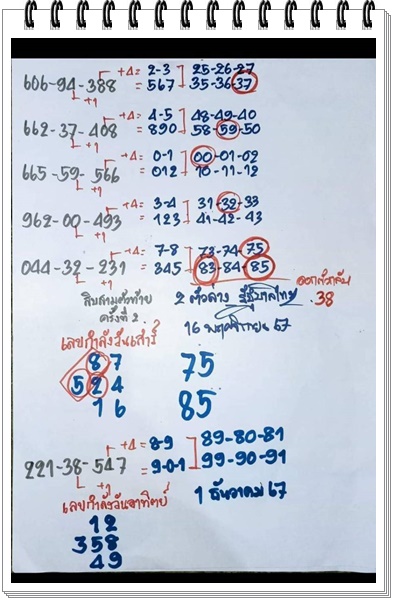 606-94-388 +4= 2-3 25-26-27
+1 = 567 35-36-37
662-37-408 +4= 4-5 48-49-40
+1 = 890 58-59-50
665-59-566 +4= 0-1 00-01-02
+1 = 012 10-11-12
962-00-493 +4= 3-4 31-32-33
+1 = 123 41-42-43
044-32-231 +4= 7-8 73-74-75
+1 = 345 83-84-85
สิบสามตัวท้าย 2 ตัวล่าง รัฐบาลไทย .38
ครั้งที่ 2 16 พฤศจิกายน 67
เลขกำลังวันเสาร์
87 75
524
16 85
221-38-547 +4= 8-9 89-80-81
+1 = 9-0-1 99-90-91
เลขกำลังวันอาทิตย์ 1 ธันวาคม 67
12
358
49